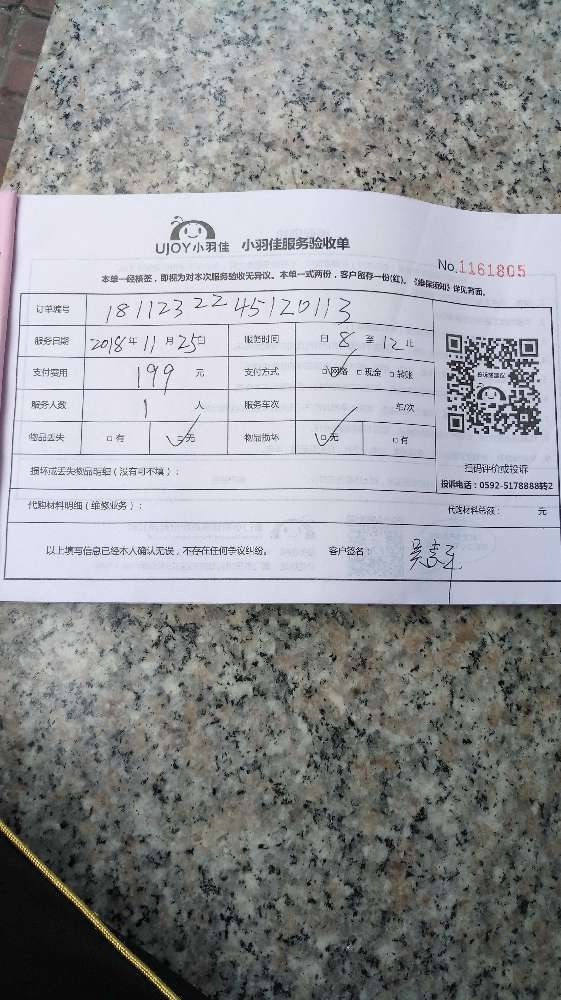 UJOY小羽佳 小羽佳服务验收单
No.1161805
本单一经核签，即视为对本次服务验收无异议。本单一式两份，客户留存一份(红)。《维保须知》详见背面。
订单编号 1811232245120113
服务日期 2018年11月25日 服务时间 日8至12止
支付费用 199元 支付方式 □网络 □现金 □转账
服务人数 1人 服务车次 车/次
物品丢失 □有 □无 物品损坏 □无 □有
扫码评价或投诉
损坏或丢失物品明细（没有可不填）：
投诉电话：0592-5178888转2
代购材料明细（维修业务）： 代购材料总额： 元
以上填写信息已经本人确认无误，不存在任何争议纠纷。 客户签名： 吴